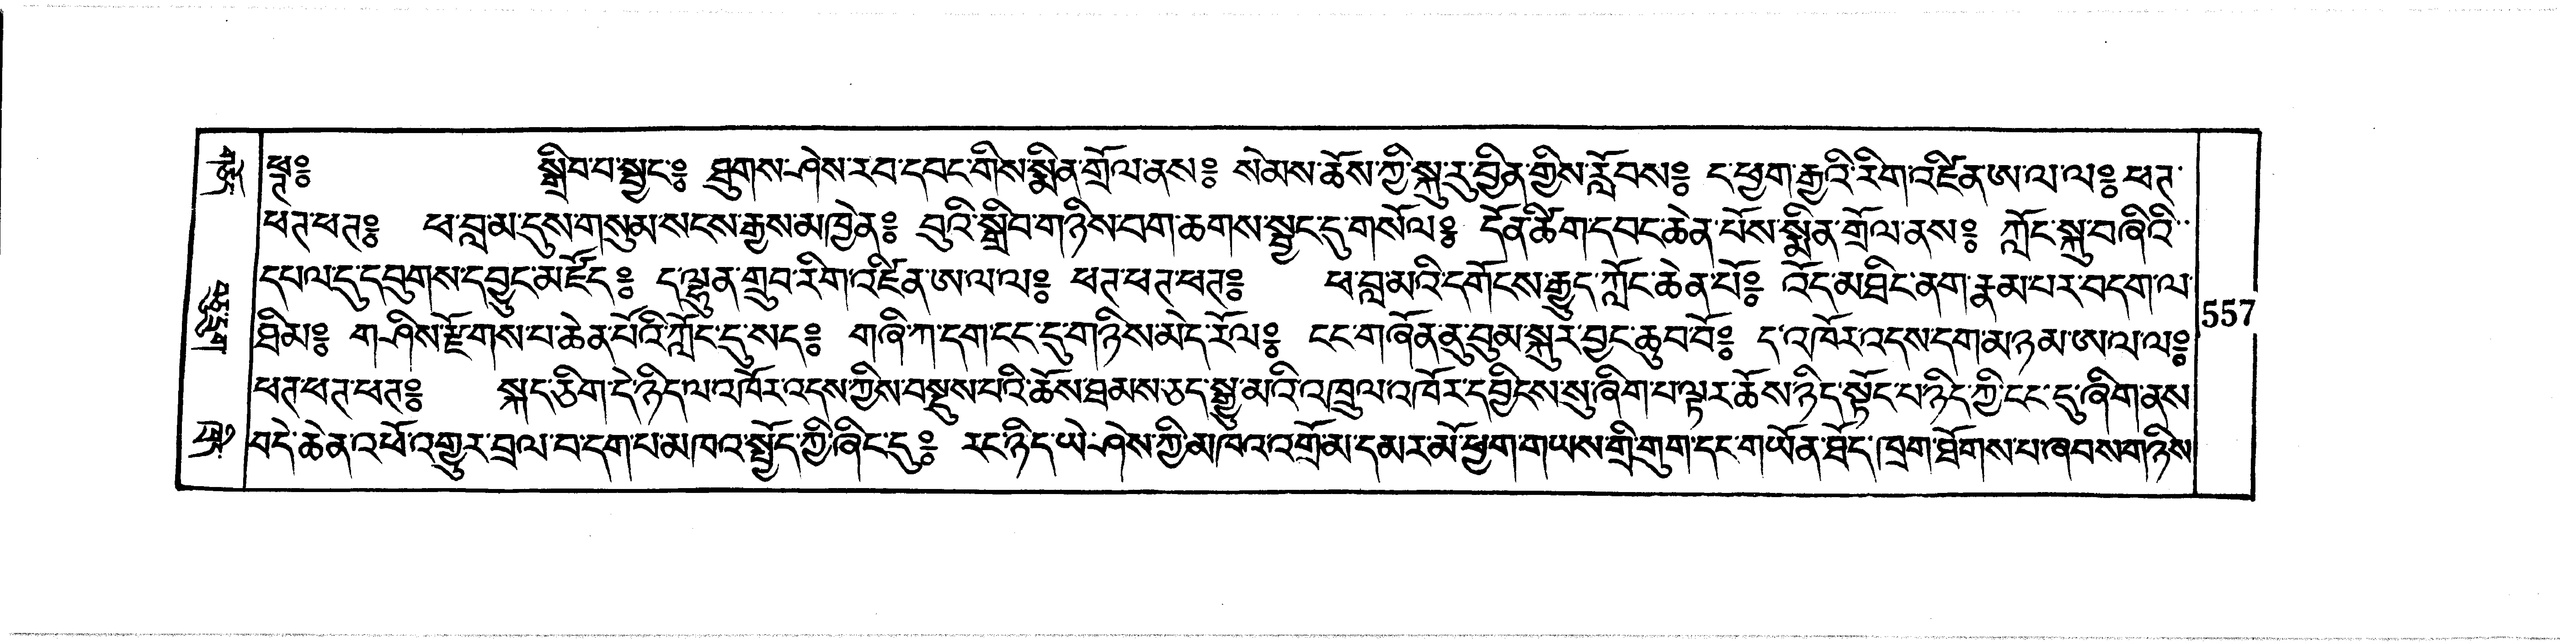 ཕཊ༔ སྒྲིབ་བ་སྦྱང་༔ ཐུགས་ཤེས་རབ་དབང་གིས་སྨིན་གྲོལ་ནས༔ སེམས་ཆོས་ཀྱི་སྐུ་རུ་བྱིན་གྱིས་རློབས༔ ང་ཕྱག་རྒྱའི་རིག་འཛིན་ཨ་ལ་ལ༔ ཕཊ་
ཕཊ་ཕཊ༔ ཕ་བླ་མ་དུས་གསུམ་སངས་རྒྱས་མཁྱེན༔ བུའི་སྒྲིབ་གཉིས་བག་ཆགས་སྦྱང་དུ་གསོལ༔ དོན་ཚིག་དབང་ཆེན་པོས་སྨིན་གྲོལ་ནས༔ ཀློང་སྐུ་བཞིའི་
དཔལ་དུ་དབུགས་དབྱུང་མཛོད༔ ང་ལྷུན་གྲུབ་རིག་འཛིན་ཨ་ལ་ལ༔ ཕཊ་ཕཊ་ཕཊ༔ ཕ་བླ་མའི་དགོངས་རྒྱུད་ཀློང་ཆེན་པོ༔ འོད་མཐིང་ནག་རྣམ་པར་བདག་ལ་
ཐིམ༔ གཤིས་རྫོགས་པ་ཆེན་པོའི་ཀློང་དུ་སད༔ གཞི་ཀ་དག་ངང་དུ་གཉིས་མེད་རོལ༔ ངང་གཞོན་ནུ་བུམ་སྐུར་བྱང་ཆུབ་བོ༔ ང་འཁོར་འདས་དག་མཉམ་ཨ་ལ་ལ༔
ཕཊ་ཕཊ་ཕཊ༔ སྐད་ཅིག་དེ་ཉིད་ལ་འཁོར་འདས་ཀྱིས་བསྡུས་པའི་ཆོས་ཐམས་ཅད་སྒྱུ་མའི་འཁྲུལ་འཁོར་དབྱིངས་སུ་ཞིག་པ་ལྟར་ཆོས་ཉིད་སྟོང་པ་ཉིད་ཀྱི་ངང་དུ་ཞིག་ནས
བདེ་ཆེན་འཕོ་འགྱུར་བྲལ་བ་དག་པ་མཁའ་སྤྱོད་ཀྱི་ཞིང་དུ༔ རང་ཉིད་ཡེ་ཤེས་ཀྱི་མཁའ་འགྲོ་མ་དམར་མོ་ཕྱག་གཡས་གྲི་གུག་དང་གཡོན་ཐོད་ཁྲག་ཐོགས་པ་ཞབས་གཉིས
557